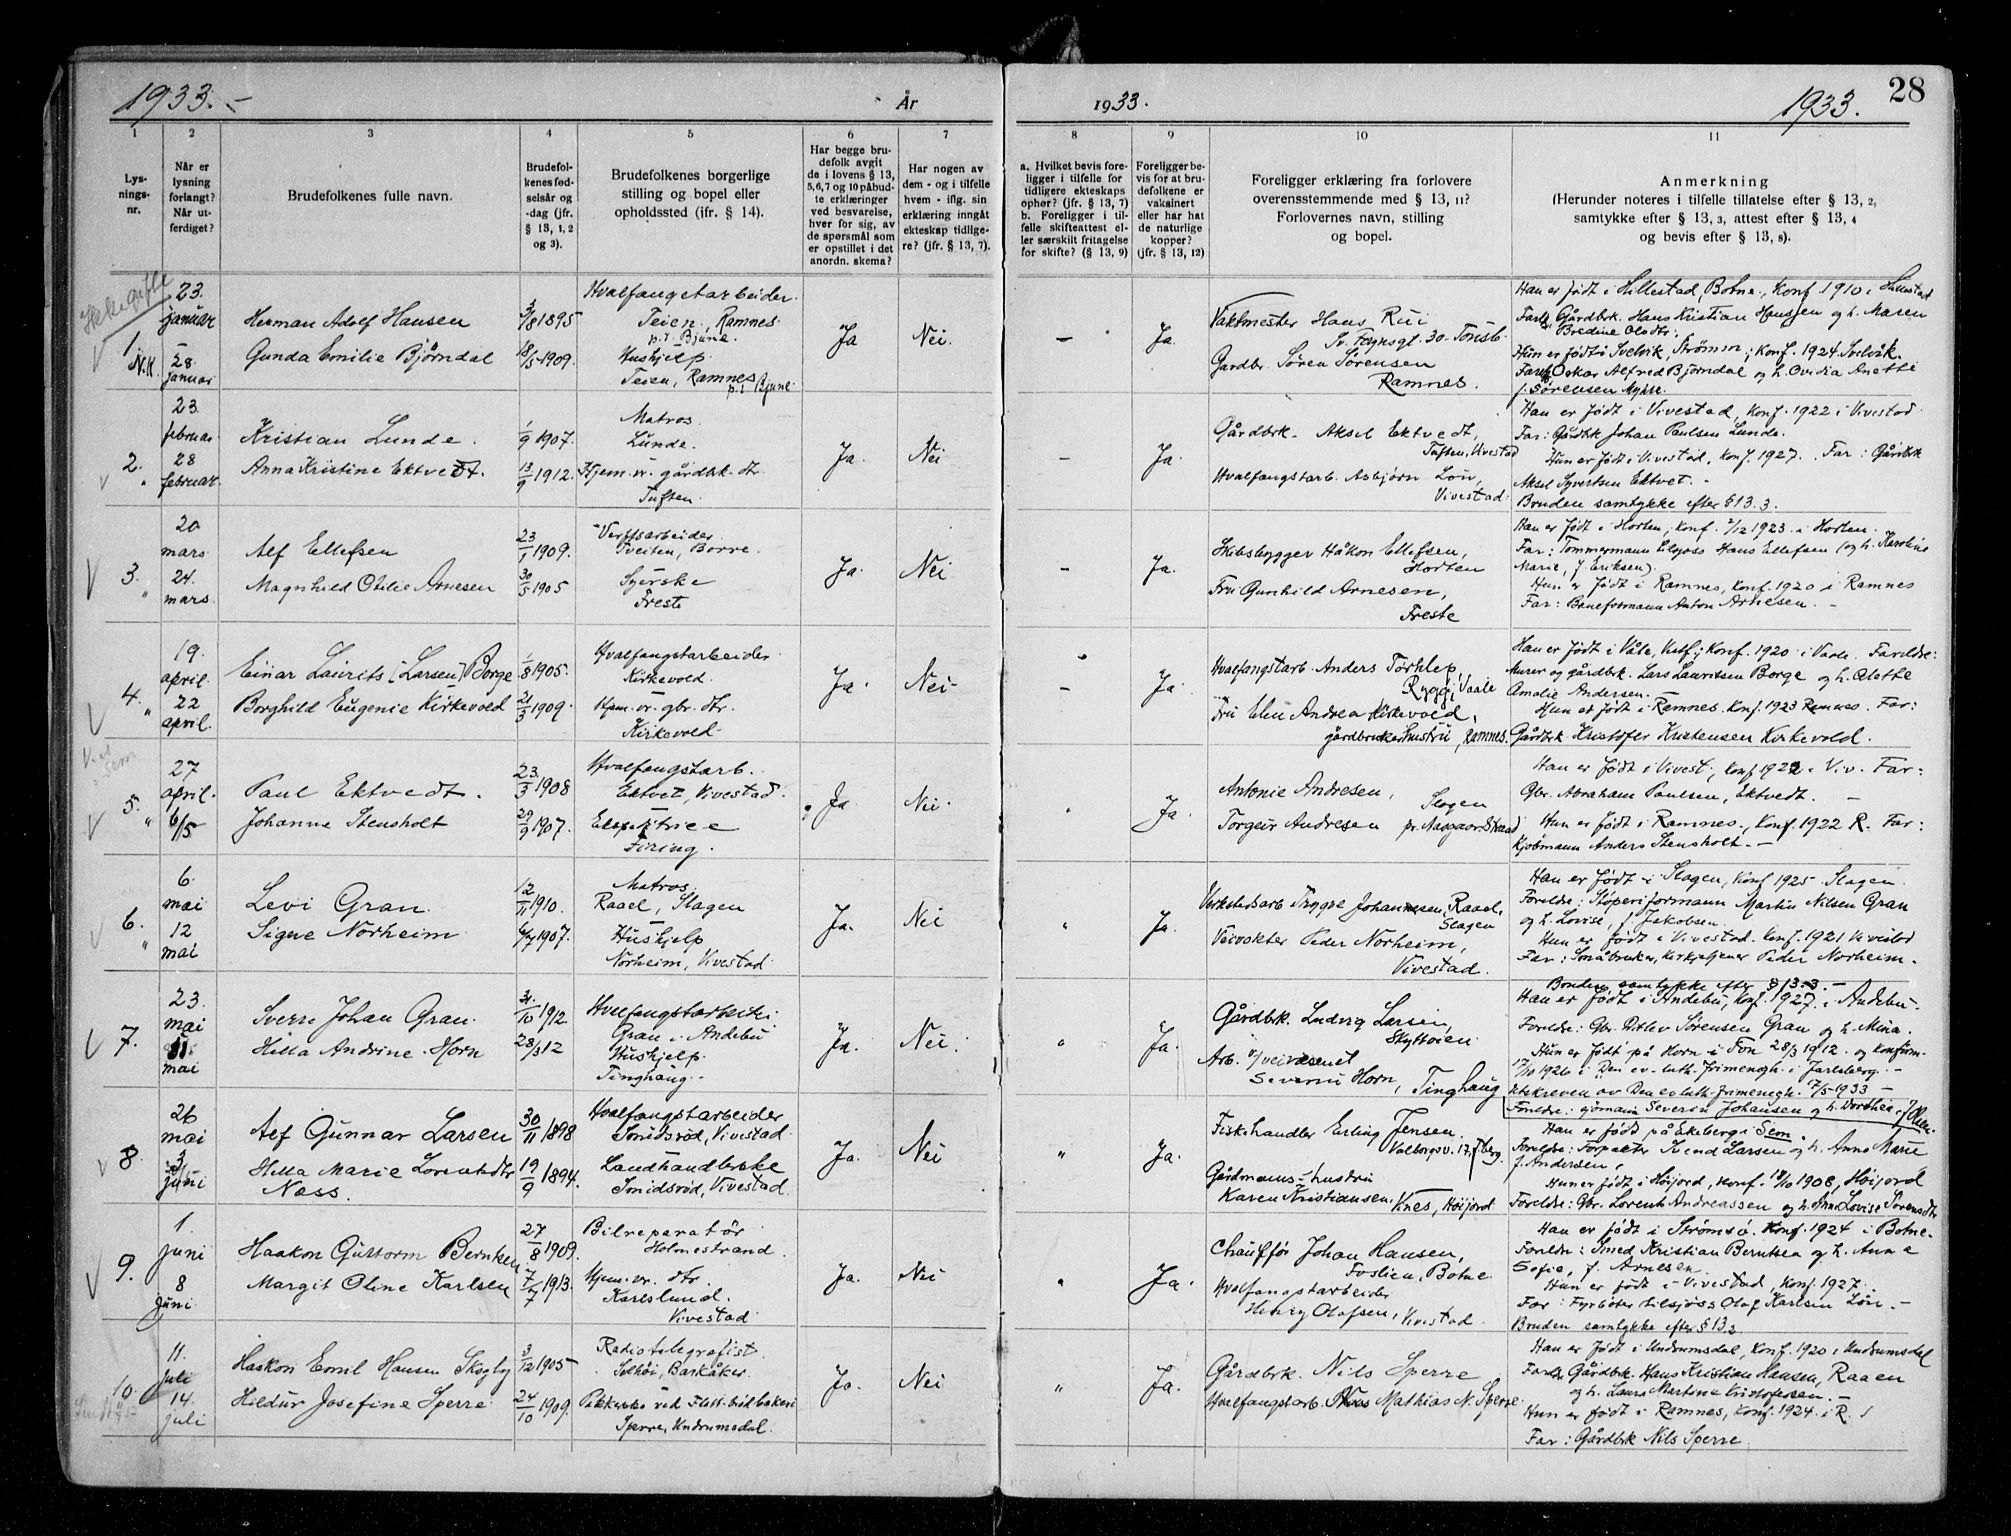 1933.-
År
1933.
1933.
28
1
2
3
4
5
6
7
8
9
10
11
Lysnings-
nr.
Når er
lysning
forlangt?
Når ut-
ferdiget?
Brudefolkenes fulle navn.
Brudefol-
kenes fød-
selsår og
-dag (jfr.
§ 13, 1, 2
og 3).
Brudefolkenes borgerlige
stilling og bopel eller
opholdssted (jfr. § 14).
Har begge bru-
defolk avgit
de i lovens § 13,
5,6,7 og 10 påbud-
te erklæringer
ved besvarelse,
hver for sig, av
de spørsmål som
er opstillet i det
anordn. skema?
Har nogen av
dem - og i tilfelle
hvem - iflg. sin
erklæring inngåt
ekteskap tidlige-
re? (jfr. § 13, 7).
a. Hvilket bevis fore-
ligger i tilfelle for
tidligere ekteskaps
ophør? (jfr. § 13, 7)
b. Foreligger i til-
felle skifteattest el-
ler særskilt fritagelse
for skifte? (§ 13, 9)
Foreligger be-
vis for at bru-
defolkene er
vaksinert
eller har hat
de naturlige
kopper?
(jfr. § 13, 12)
Foreligger erklæring fra forlovere
overensstemmende med § 13, 11?
Forlovernes navn, stilling
og bopel.
Anmerkning
(Herunder noteres i tilfelle tillatelse efter § 13, 2,
samtykke efter § 13, 3, attest efter § 13, 4
og bevis efter § 13, 8).
Ikke gifte
1.
N.K.
23.
januar
28
januar
Herman Adolf Hansen
Gunda Emilie Bjørndal
3/8 1895
18/5 1909.
Hvalfangstarbeider.
Teien, Ramnes
p.t. Bjune.
Hushjelp
Teien, Ramnes
p.t. Bjune
Ja
Nei.
–
Ja.
Vaktmester Hans Rui
30 Tønsb.
Gardbr. Søren Sørensen
Ramnes.
Han er født i Hillestad, Botne, Konf. 1910 i Hillestad
Gårdbrk. Hans Kristian Hanssen og h. Maren
Bredine Olsdtr.
Hun er født i Svelvik, Strømm; Konf. 1924 Svelvik.
Oskar Alfred Bjørndal og h. Ovidia Anette
f. Sørensen
2.
23.
februar
28
februar.
Kristian Lunde.
Anna Kristine Ektvedt.
1/9 1907.
13/9 1912.
Matros.
Lunde.
Hjem. v. gårdbk. dt.
Tuften.
Ja.
Nei
–
Ja.
Gårdbrk. Aksel Ektvedt,
Tuften, Vivestad
Hvalfangstarb. Asbjørn Løv,
Vivestad.
Han er født i Vivestad, Konf. 1922 i Vivestad
Far: Gårdbk Johan Paulsen Lunde.
Hun er født i Vivestad, konf. 1927. Far: Gårdbk
Aksel Syvertsen Ektvet. -
Bruden samtykke efter § 13.3.
3.
20
mars
24.
mars.
Alf Ellefsen
Magnhild Otilie Arnesen
23/1 1909.
30/5 1905
Verftsarbeider.
Tveiten, Borre.
Syerske
Freste
Ja.
Nei
–
Ja.
Skibsbygger Håkon Ellefsen,
Horten
Fru Gunhild Arnesen,
Freste
Han er født i Horten, konf. 2/12 1923 i Horten.
Far: Tømmermann Hans Ellefsen (og h. Karoline
Marie, f. Eriksen).
Hun er født i Ramnes, Konf. 1920 i Ramnes
Far: Baneformann Anton Arnesen. -
4.
19.
april.
22
april.
Einar Laurits [Larsen] Borge
Borghild Eugenie Kirkevold
1/8 1905.
21/3 1909.
Hvalfangstarbeider
Kirkevold.
Hjem. v. gbr. dtr.
Kirkevold.
Ja.
Nei
–
Ja.
Hvalfangstarb. Anders Torklep
Rygg, Vaale
Fru Elen Andrea Kirkevold,
gårdbrukerhustru, Ramnes.
Han er født i Våle, Konf. 1920 i Vaale. Foreldre:
Murer og gårdbrk. Lars Lauritsen Borge og h. Olette
Amalie Andersen.
Hun er født i Ramnes. Konf. 1923 Ramnes. Far:
Gårdbrk Kristofer Kristensen Kirkevold.
Sem
5.
27
april.
6/5
Paul Ektvedt.
Johanne Stensholt
23/3 1908
29/9 1907.
Hvalfangstarb.
Ektvet, Vivestad.
Ekspeditrice
Firing.
Ja.
Nei.
"
Ja.
Antonie Andresen,
Slagen
Torgeir Andresen
Han er født i Vivest., konf 1922 i Viv. Far:
Gbr. Abraham Paulsen, Ektvedt. -
Hun er født i Ramnes, Konf. 1922 R. Far:
Kjøbmann Anders Stensholt. -
6.
6.
mai
12
mai
Levi Gran.
Signe Norheim.
12/11 1910.
1907.
Matros.
Raael, Slagen
Hushjelp
Norheim, Vivestad.
Ja.
Nei
"
Ja.
Verkstedsarb Trygve Johannesen, Raael,
Slagen
Veivokter Peder Norheim,
Vivestad.
Han er født i Slagen, Konf 1925 Slagen.
Foreldre: Støperiformann Martin Nilsen Gran
og h. Lovise, f. Jakobsen.
Hun er født i Vivestad. Konf. 1921 Vivestad
Far: Småbruker, kirketjener Peder Norheim.
7.
23.
mai
31.
mai
Sverre Johan Gran.
Hilla Andrine Horn
31./10 1912
28/3 12
Hvalfangstarbeider
Gran i Andebu
Hushjelp.
Tinghaug.-
Ja.
Nei.
"
Ja.
Gårdbrk. Ludvig Larsen,
Skytveien.
Arb. v/veivesenet
Severin Horn, Tinghaug
Bruden samtykke efter § 13.3. -
Han er født i Andebu, konf. 1927. i Andebu.
Foreldre: Gbr. Ditlev Sørensen Gran og h. Mina.
Hun er født på Horn i Fon 28/3 1912. og konfirm.
17/10 1926 i Den ev.-luth. frimenigh. i Jarlsberg. -
Utskreven av Den ev. luth. frimenigh. 17/5 1933 -
Foreldre: Severin Johansen og h. Dorthea, f. Olsen.
8.
26
mai
3
juni
Alf Gunnar Larsen
Hilla Marie Lorentsdtr
Næss.
30/11 1898
19/9 1894.
Hvalfangstarbeider
Smidsrød, Vivestad.
Landhandlerske
Smidsrød, Vivestad.
Ja.
Nei
"
Ja.
Fiskehandler Erling Jensen.
Valborgsv. 17, Tbg.
Gårdmanns-hustru
Karen Kristiansen, Vines, Høijord
Han er født på Ekeberg i Sem.
Foreldre: Forpakter Svend Larsen og h. Anne Marie
f. Andersen,
Hun er født i Høijord, Konf. 18/10 1908, Høijord
Foreldre: Gbr. Lorents Andreassen og h. Anne Lovise Sørensdtr
9.
1.
juni
8
Juni
Haakon Guttorm Berntsen
Margit Oline Karlsen
27/8 1909.
7/7 1913.
Bilreparatør
Holmestrand.
Hjem. v. dtr.
Karlslund.
Vivestad
Ja.
Nei
"
Ja.
Chauffør Johan Hansen,
Foslien, Botne
Hvalfangstarbeider
Henry Olafsen, Vivestad.
Han er født i Strømsø. Konf. 1924 i Botne.
Foreldre: Smed Kristian Berntsen og h. Anne
Sofie, f. Arnesen.
Hun er født i Vivestad, Konf. 1927.
Far: Fyrbøter tilsjøss Olaf Karlsen Løv. -
Bruden samtykke efter § 13 2
10.
11.
juli
14.
juli
Haakon Emil Hansen Skogly
Hildur Josefine Sperre
3/12 1905
24/10 1909.
Radiotelegrafist.
Solhøi, Barkåker.
Pakkerske ved Flatbrødbakeri
Sperre, Undrumsdal.
Ja.
Nei
"
Ja.
Gårdbrk. Nils Sperre
Hvalfangstarb. Mathias N. Sperre.
Han er født i Undrumsdal, Konf. 1920 i Undrumsdal
Gårdbrk. Hans Kristian Hansen, Raaen
og h. Laura Martine Kristofersen. -
Hun er født i Ramnes, Konf. 1924. i R.
Far: Gårdbrk Nils Sperre.